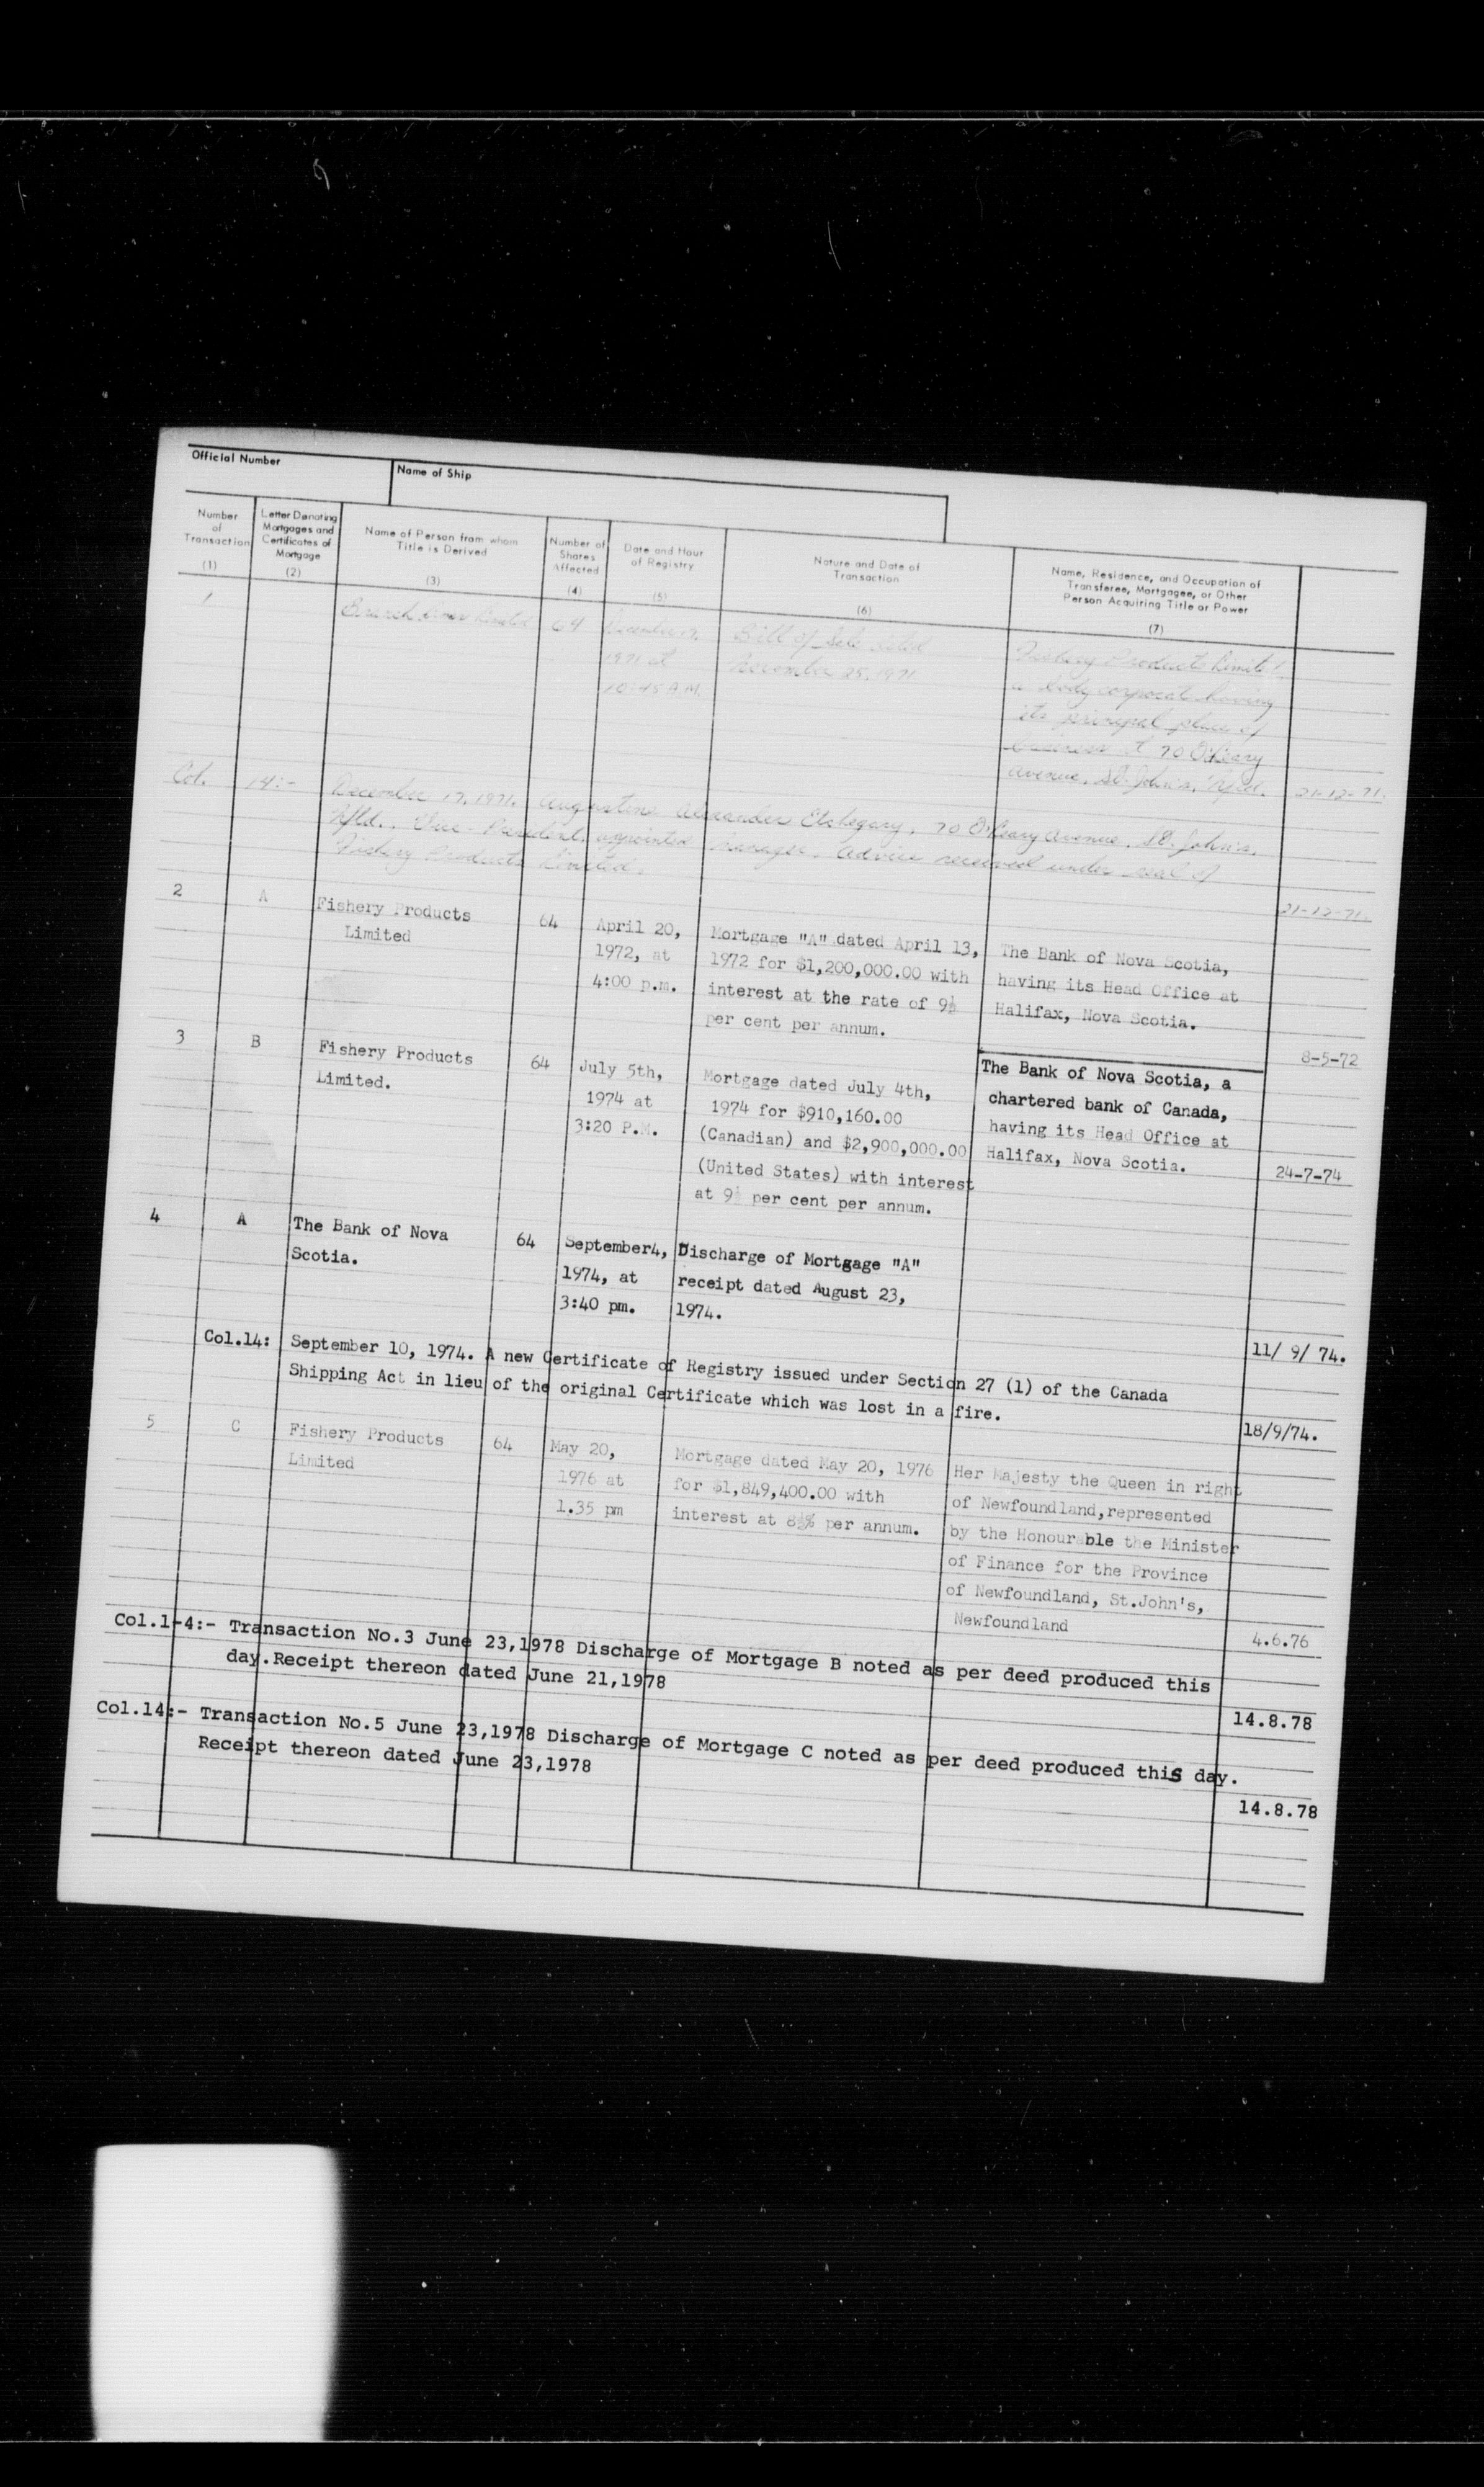 Official Number
Name of Ship
Number of Transaction (1)
Letter Denoting Mortgages and Certificates of Mortgage (2)
Name of Person from whom Title is Derived (3)
Number of Shares Affected (4)
Date and Hour of Registry (5)
Nature and Date of Transaction (6)
Name, Residence, and Occupation of Transferee, Mortgagee, or Other Person Acquiring Title or Power (7)
1
Limited
64
December 17,
1971 at
10:45 A.M.
Bill of Sale dated
November 25, 1971
Fishery Products Limited,
a body corporate having
its principal place of
business at 70 O'Leary
Avenue, St. John's, Nfld.
21-12-71.
Col. 14:- December 17, 1971. Augustine Alexander Etchegary, 70 O'Leary Avenue, St. John's,
Nfld., Vice-President, appointed manager. Advice received under seal of
Fishery Products Limited.
21-12-71.
2
A
Fishery Products
Limited
64
April 20,
1972, at
4:00 p.m.
Mortgage "A" dated April 13,
1972 for $1,200,000.00 with
interest at the rate of 9½
per cent per annum.
The Bank of Nova Scotia,
having its Head Office at
Halifax, Nova Scotia.
8-5-72
3
B
Fishery Products
Limited.
64
July 5th,
1974 at
3:20 P.M.
Mortgage dated July 4th,
1974 for $910,160.00
(Canadian) and $2,900,000.00
(United States) with interest
at 9½ per cent per annum.
The Bank of Nova Scotia, a
chartered bank of Canada,
having its Head Office at
Halifax, Nova Scotia.
24-7-74
4
A
The Bank of Nova
Scotia.
64
September4,
1974, at
3:40 pm.
Discharge of Mortgage "A"
receipt dated August 23,
1974.
11/ 9/ 74.
Col.14: September 10, 1974. A new Certificate of Registry issued under Section 27 (1) of the Canada
Shipping Act in lieu of the original Certificate which was lost in a fire.
18/9/74.
5
C
Fishery Products
Limited
64
May 20,
1976 at
1.35 pm
Mortgage dated May 20, 1976
for $1,849,400.00 with
interest at 8½% per annum.
Her Majesty the Queen in right
of Newfoundland,represented
by the Honourable the Minister
of Finance for the Province
of Newfoundland, St.John's,
Newfoundland
4.6.76
Col.1-4:- Transaction No.3 June 23,1978 Discharge of Mortgage B noted as per deed produced this
day.Receipt thereon dated June 21,1978
14.8.78
Col.14:- Transaction No.5 June 23,1978 Discharge of Mortgage C noted as per deed produced this day.
Receipt thereon dated June 23,1978
14.8.78